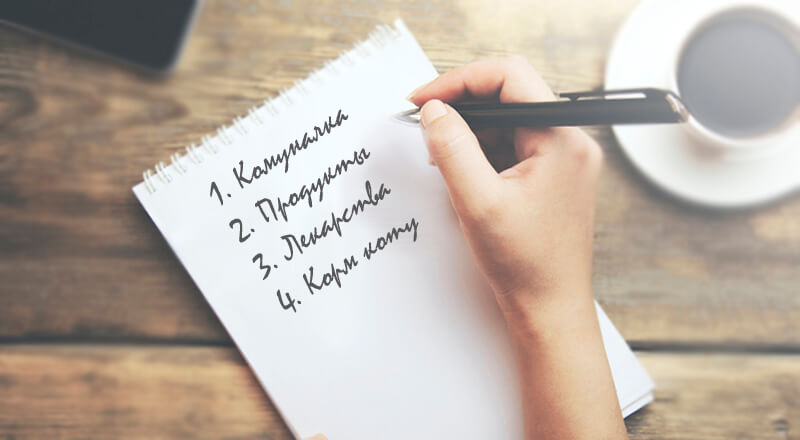 1. Комуналка
2. Продукты
3. Лекарства
4. Корм коту